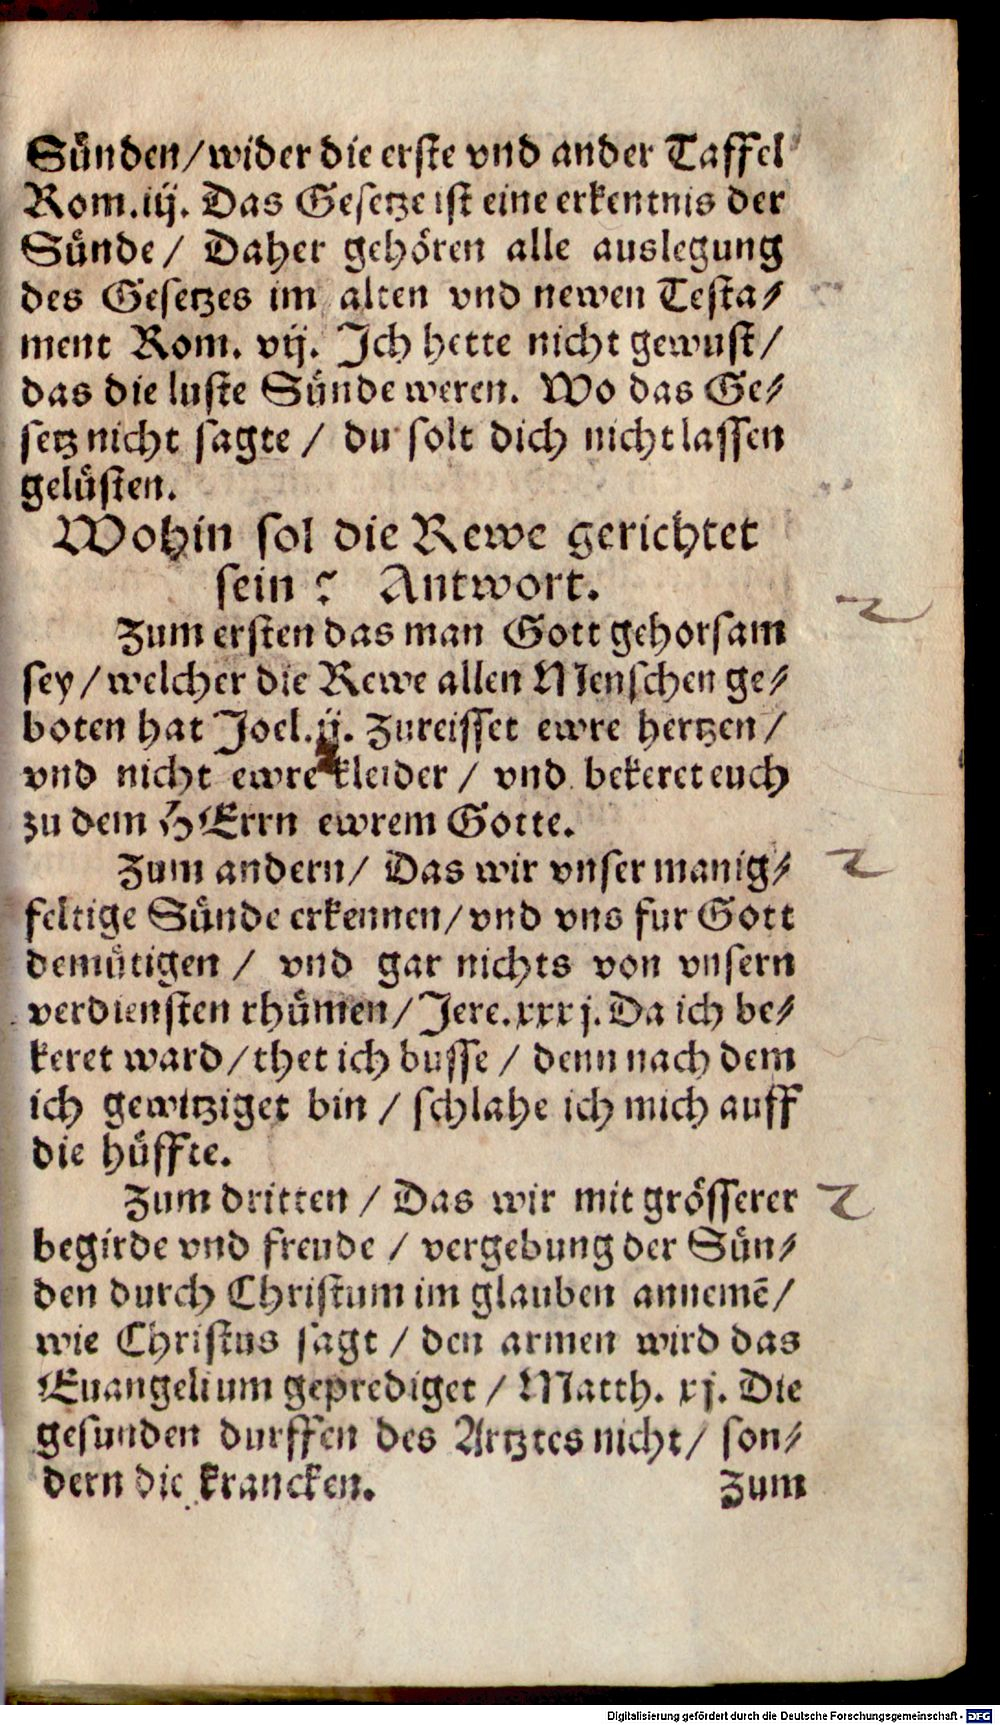 Sünden/wider die erste vnd ander Taffel
Rom.iij. Das Gesetze ist eine erkentnis der
Sünde/ Daher gehören alle auslegung
des Gesetzes im alten vnd newen Testa-
ment Rom. vij. Ich hette nicht gewust/
das die luste Sünde weren. Wo das Ge-
setz nicht sagte / du solt dich nicht lassen
gelüsten.
Wohin sol die Rewe gerichtet
sein? Antwort.
Zum ersten das man Gott gehorsam
sey/welcher die Rewe allen Menschen ge-
boten hat Joel.ij. Zureisset ewre hertzen/
vnd nicht ewre kleider / vnd bekeret euch
zu dem HErrn ewrem Gotte.
Zum andern/ Das wir vnser manig-
feltige Sünde erkennen/vnd vns fur Gott
demütigen / vnd gar nichts von vnsern
verdiensten rhümen/Jere.xxxj.Da ich be-
keret ward/thet ich busse / denn nach dem
ich gewitziget bin / schlahe ich mich auff
die hüffte.
Zum dritten / Das wir mit grösserer
begirde vnd freude / vergebung der Sün-
den durch Christum im glauben annemē/
wie Christus sagt / den armen wird das
Euangelium geprediget / Matth. xj. Die
gesunden durffen des Artztes nicht/ son-
dern die krancken.
Zum
Digitalisierung gefördert durch die Deutsche Forschungsgemeinschaft - DFG